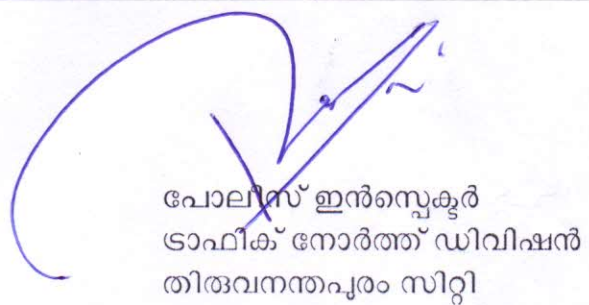 പോലീസ് ഇൻസ്പെക്ടർ
ട്രാഫിക് നോർത്ത് ഡിവിഷൻ
തിരുവനന്തപുരം സിറ്റി